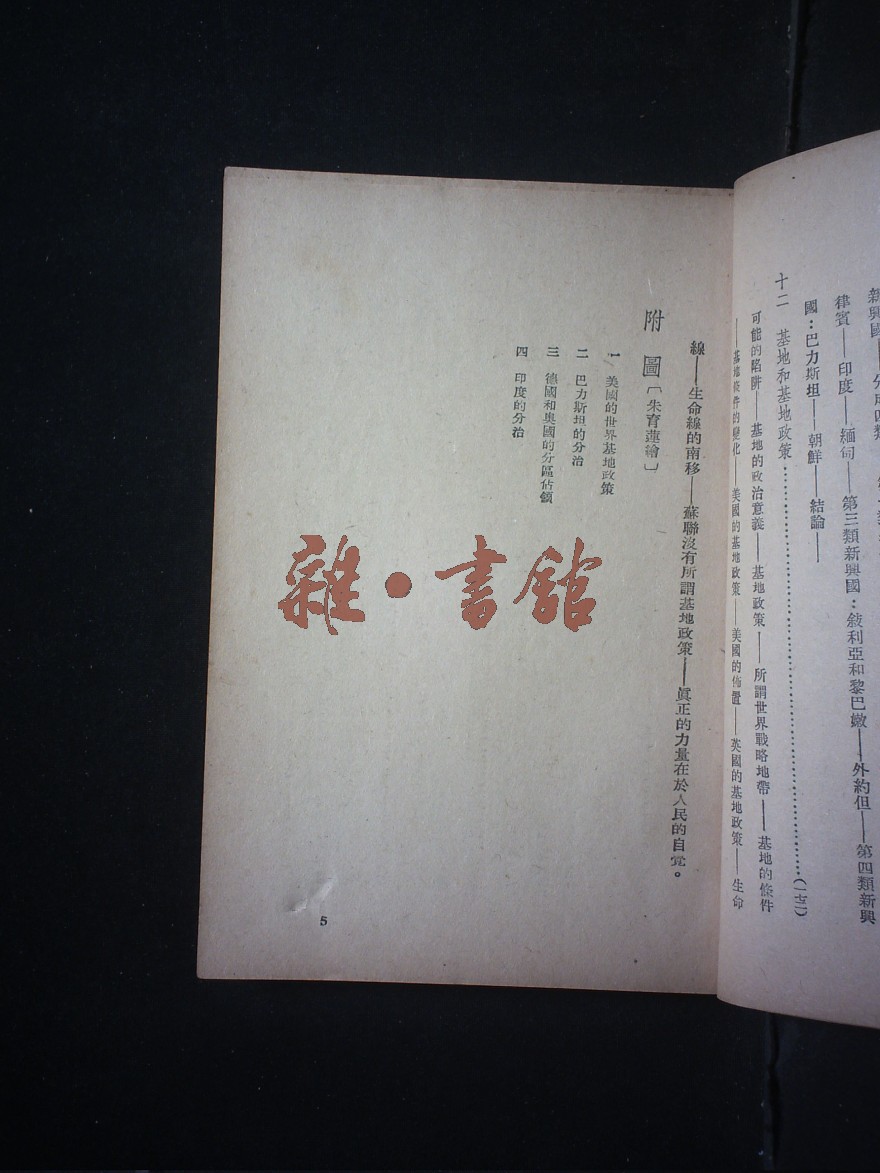 律賓——印度——緬甸——第三類新興國：敍利亞和黎巴嫩——外約但——第四類新興
國：巴力斯坦——朝鮮——結論——
十二 基地和基地政策……………………………………(一七三)
可能的陷阱——基地的政治意義——基地政策——所謂世界戰略地帶——基地的條件
——基地條件的變化——美國的基地政策——美國的佈置——英國的基地政策——生命
線——生命線的南移——蘇聯沒有所謂基地政策——眞正的力量在於人民的自覺。
附圖〔朱育蓮繪〕
一 美國的世界基地政策
二 巴力斯坦的分治
三 德國和奧國的分區佔領
四 印度的分治
5
雜•書館